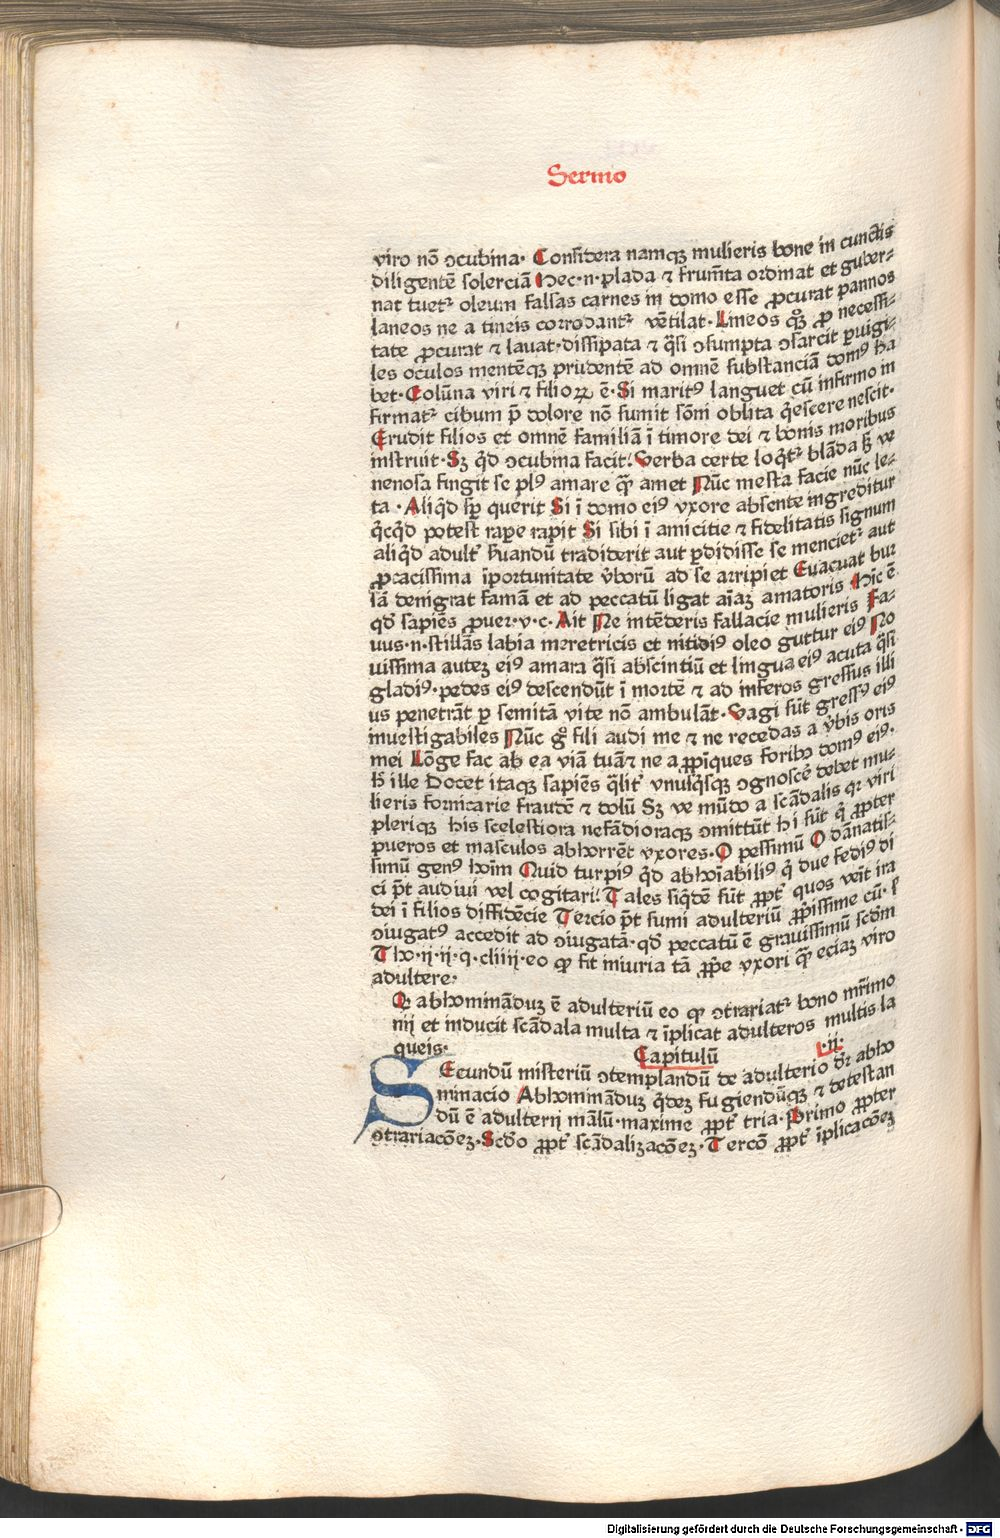 Sermo
viro nō ↄcubina· Considera namqꝫ mulieris bone in cunctis
diligentē solerciā Hec·n·plada ⁊ frumēta ordinat et guber⸗
nat tuetᷣ oleum falsas carnes in domo esse ꝓcurat pannos
laneos ne a tineis corrodantᷣ vētilat·Lineos qͦꝫ ꝓ necessi⸗
tate ꝓcurat ⁊ lauat·dissipata ⁊ qͣsi ↄsumpta ↄsarcit ꝑuigi⸗
les oculos mentēqꝫ prudentē ad omnē substanciā domꝰ ha
bet·Colūna viri ⁊ filioꝝ ē·Si maritꝰ languet cū infirmo in
firmatᷣ cibum p̄ dolore nō sumit sōni oblita qͥescere nescit·
Erudit filios et omnē familiā ī timore dei ⁊ bonis moribus
instruit·Sꝫ qͥd ↄcubina facit! Verba certe loqͥtᷣ blāda sꝫ ve
nenosa fingit se plꝰ amare qͣꝫ amet Nūc mesta facie nūc le⸗
ta ·Aliqͥd sp̄ querit Si ī domo eiꝰ vxore absente ingreditur
qͥcqͥd potest rape rapit Si sibi ī amicitie ⁊ fidelitatis signum
aliqͥd adultᷣ huandū tradiderit aut ꝑdidisse se mencietᷣ aut
ꝓcacissima īportunitate v̓borū ad se arripiet Euacuat bur
sā denigrat famā et ad peccatū ligat aīaꝫ amatoris Hīc ē
qd̓ sapiēs ꝓuer·v·c·Ait Ne intēderis fallacie mulieris Fa⸗
uus·n·stillās labia meretricis et nitidiꝰ oleo guttur eiꝰ No
uissima auteꝫ eiꝰ amara qͣsi abscintiū et lingua eiꝰ acuta qͣsi
gladiꝰ·pedes eiꝰ descendūt ī mortē ⁊ ad inferos gressus illi
us penetrāt ꝑ semitā vite nō ambulāt·Vagi sūt gressꝰ eiꝰ
inuestigabiles Nūc gͦ fili audi me ⁊ ne recedas a v̓bis oris
mei Lōge fac ab ea viā tuā⁊ ne aꝓpīques foribꝫ domꝰ eiꝰ·
h̓ ille Docet itaqꝫ sapiēs qͣlitᷣ vnusqͥsqꝫ ↄgnoscē debet mu⸗
lieris fornicarie fraudē ⁊ dolū Sꝫ ve mūdo a scādalis qꝛ viri
pleriqꝫ his scelestiora nefādioraqꝫ ↄmittūt hi sūt qͥ ꝓpter
pueros et masculos abhorrēt vxores·O pessimū O dānatis⸗
simū genꝰ hoīm Quid turpiꝰ qͥd abhoīabiliꝰ qͥ due fediꝰ di
ci p̄t audiui vel cogitari! Tales siqͥdē sūt ꝓptᷣ quos veīt ira
dei ī filios diffidēcie Tercio p̄t sumi adulteriū ꝓp̄issime cū· s̓
ↄiugatꝰ accedit ad ↄiugatā·qd̓ peccatū ē grauissimū scdm
Tho·ij·ij·q·cliiij·eo ꝙ fit iniuria tā ꝓp̄e vxori qͣꝫ eciaꝫ viro
adultere·
Q abhomināduꝫ ē adulteriū eo ꝙ ↄtrariatᷣ bono mr̄imo
nij et inducit scādala multa ⁊ īplicat adulteros multis la
queis· Capitulū ·ij·
SEcundū misteriū ↄtemplandū de adulterio dr̄ abho
minacio Abhominanduꝫ qͥdeꝫ fugiendūqꝫ ⁊ detestan
dū ē adulterij mālū·maxime ꝓptᷣ tria·Primo ꝓpter
ↄtrariacōeꝫ·Scd̓o ꝓptᷣ scādalizacōeꝫ·Tercō ꝓptᷣ īplicacōeꝫ
Digitalisierung gefördert durch die Deutsche Forschungsgemeinschaft - DFG